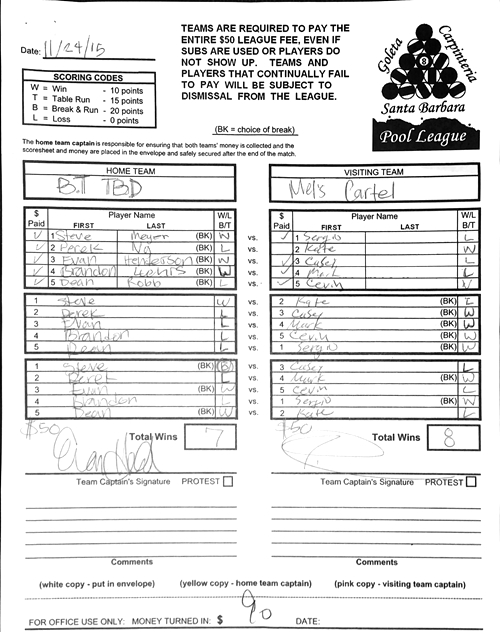 Date: 11/24/15
TEAMS ARE REQUIRED TO PAY THE
ENTIRE $50 LEAGUE FEE, EVEN IF
SUBS ARE USED OR PLAYERS DO
NOT SHOW UP. TEAMS AND
PLAYERS THAT CONTINUALLY FAIL
TO PAY WILL BE SUBJECT TO
DISMISSAL FROM THE LEAGUE.
(BK = choice of break)
SCORING CODES
W = Win - 10 points
T = Table Run - 15 points
B = Break & Run - 20 points
L = Loss - 0 points
Goleta
Carpinteria
8
Santa Barbara
Pool League
The home team captain is responsible for ensuring that both teams' money is collected and the
scoresheet and money are placed in the envelope and safely secured after the end of the match.
HOME TEAM
B.T TBD
VISITING TEAM
Mel's Cartel
$ Paid Player Name FIRST LAST W/L B/T
$ Paid Player Name FIRST LAST W/L B/T
✓ 1 Steve Meyer (BK) W vs. ✓ 1 Sergio L
✓ 2 Derek Ng (BK) L vs. 2 Kate W
✓ 3 Evan Henderson (BK) W vs. ✓ 3 Casey L
✓ 4 Brandon Lewis (BK) W vs. ✓ 4 Mark L
✓ 5 Dean Robb (BK) L vs. ✓ 5 Cevin W
1 Steve W vs. 2 Kate (BK) L
2 Derek L vs. 3 Casey (BK) W
3 Evan L vs. 4 Mark (BK) W
4 Brandon L vs. 5 Cevin (BK) W
5 Dean L vs. 1 Sergio (BK) W
1 Steve (BK) vs. 3 Casey L
2 Derek L vs. 4 Mark (BK) W
3 Evan (BK) W vs. 5 Cevin L
4 Brandon L vs. 1 Sergio (BK) W
5 Dean (BK) W vs. 2 Kate L
$50 Total Wins 7
$50 Total Wins 8
Team Captain's Signature PROTEST
Team Captain's Signature PROTEST
Comments
Comments
(white copy - put in envelope) (yellow copy - home team captain) (pink copy - visiting team captain)
FOR OFFICE USE ONLY: MONEY TURNED IN: $ 90 DATE: